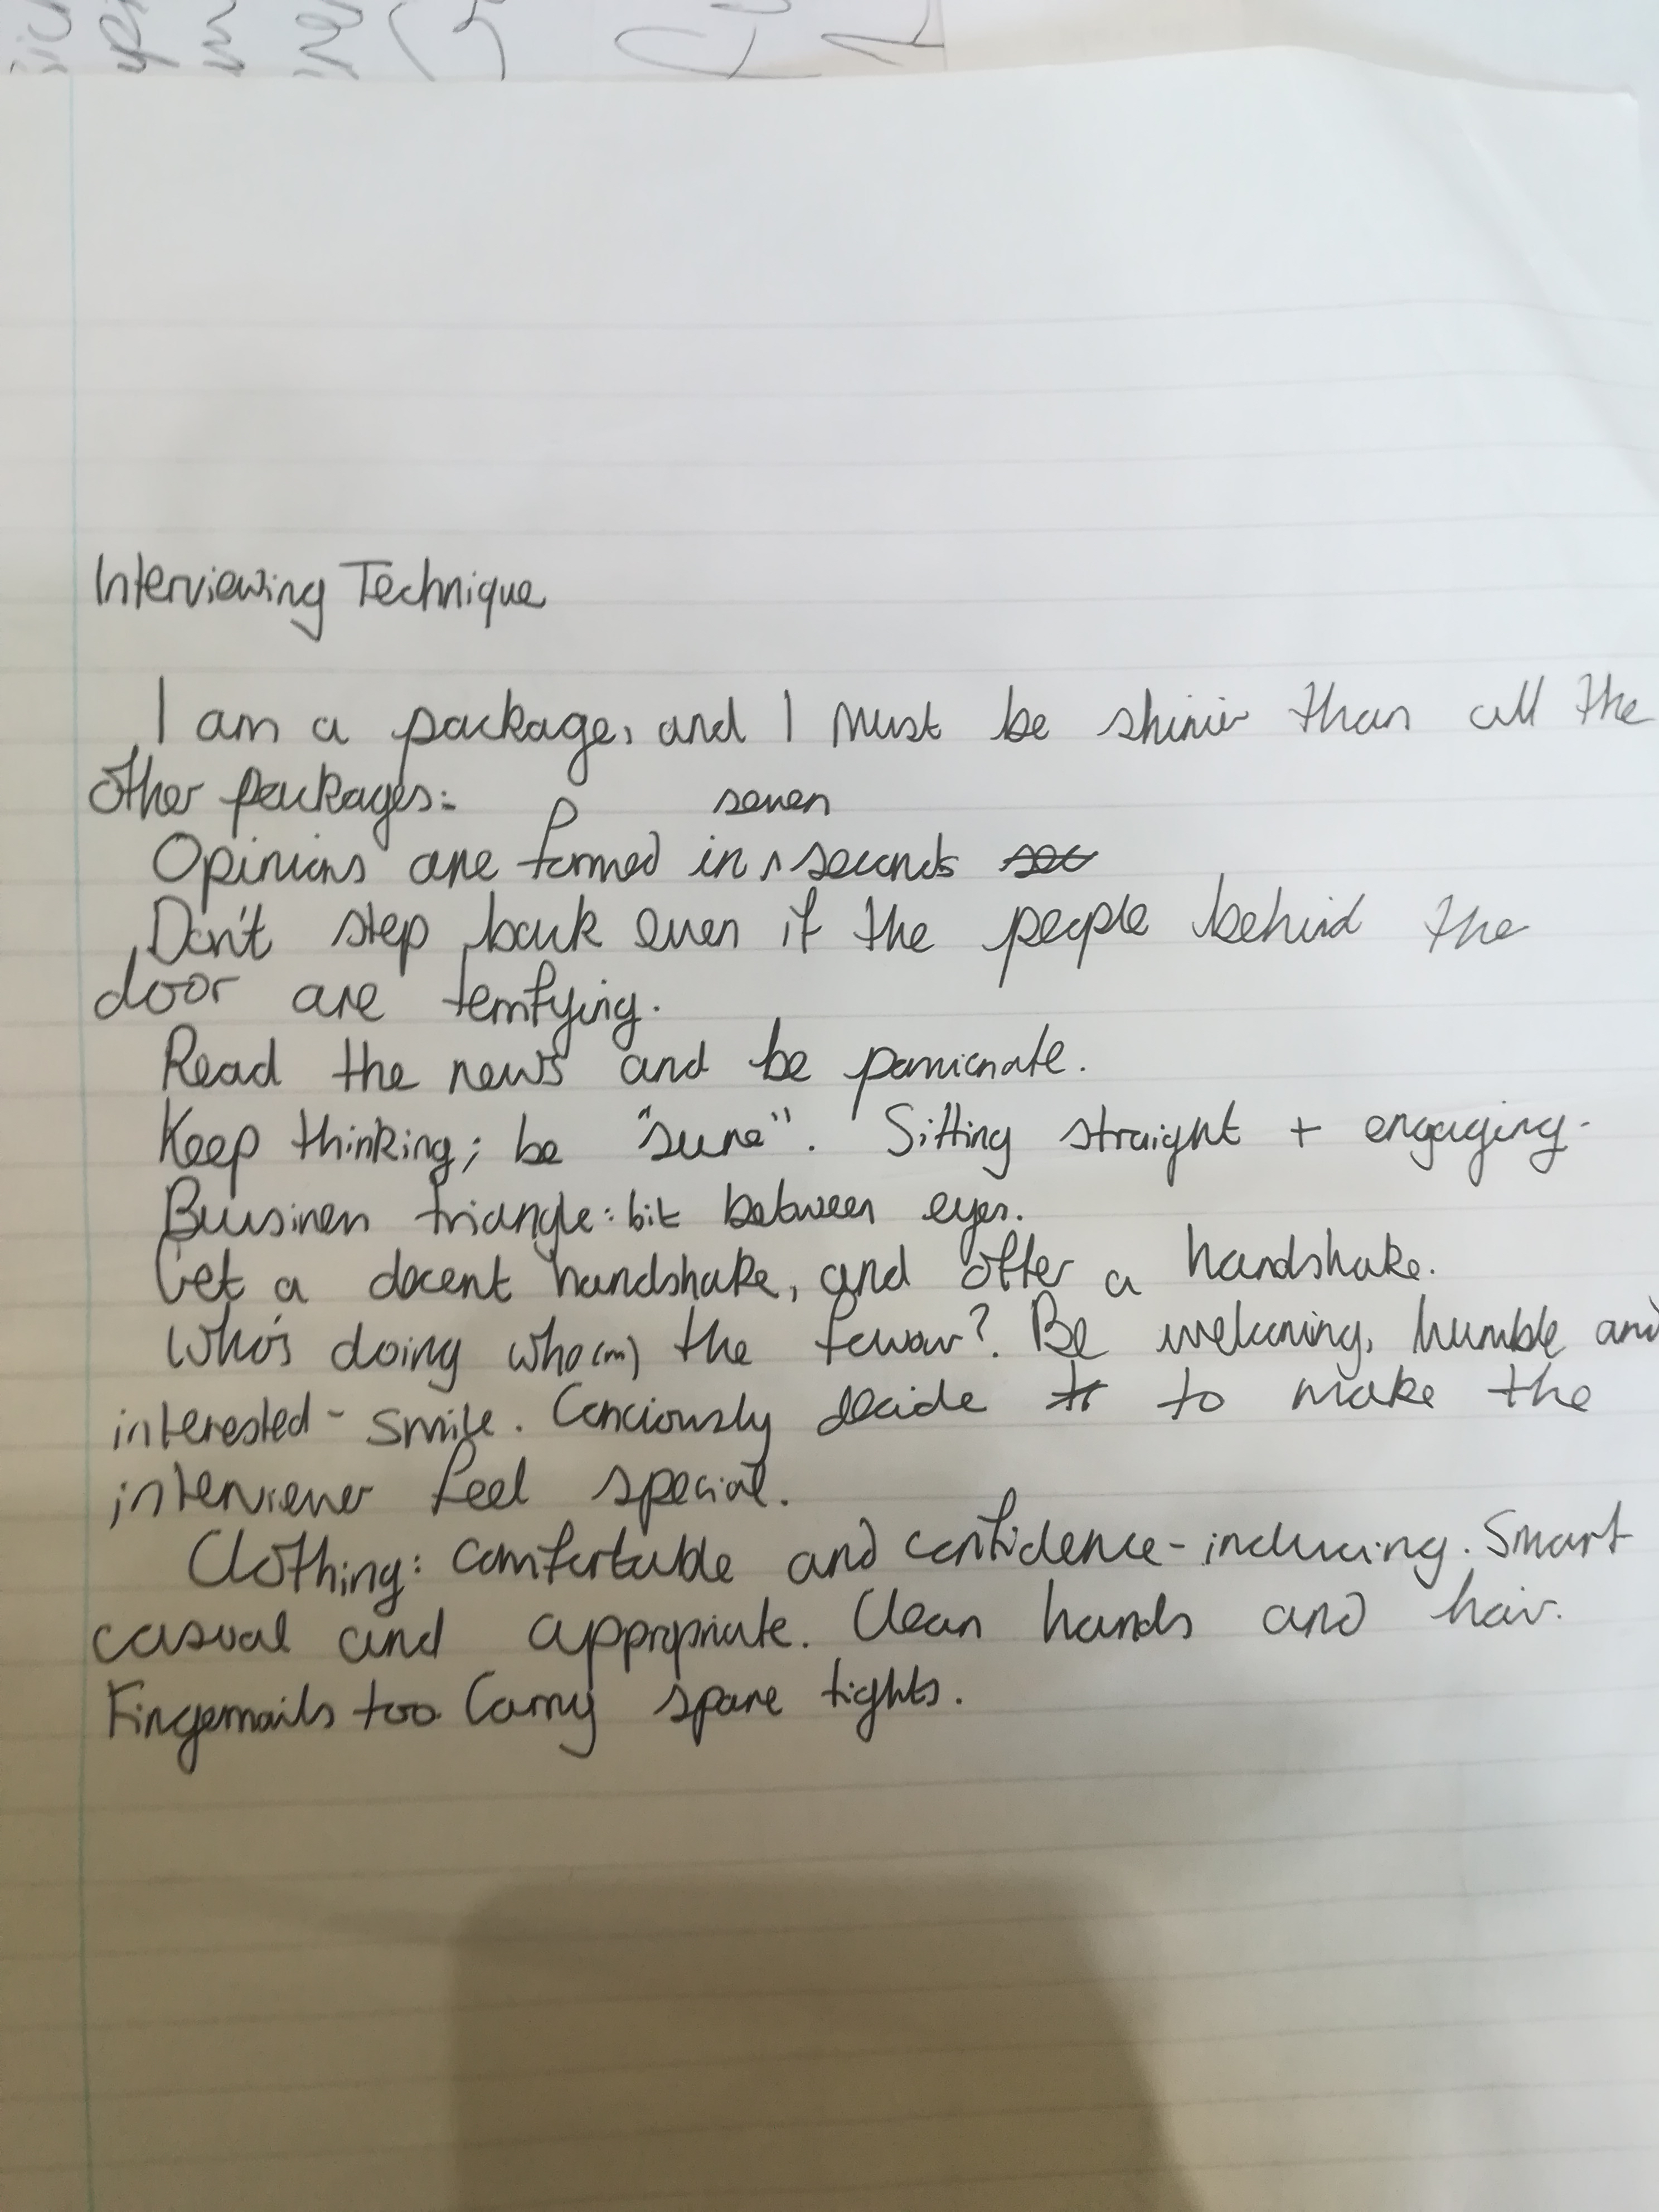 Interviewing Technique
I am a package, and I must be shinier than all the
other packages:
Opinions are formed in seven seconds
Don't step back even if the people behind the
door are terrifying.
Read the news and be passionate.
Keep thinking; be "sure". Sitting straight + engaging.
Business triangle: bit between eyes.
Get a decent handshake, and offer a handshake.
Who's doing who(m) the favour? Be welcoming, humble and
interested - smile. Conciously decide to make the
interviewer feel special.
Clothing: comfortable and confidence-inducing. Smart
casual and appropriate. Clean hands and hair.
Fingernails too. Carry spare tights.